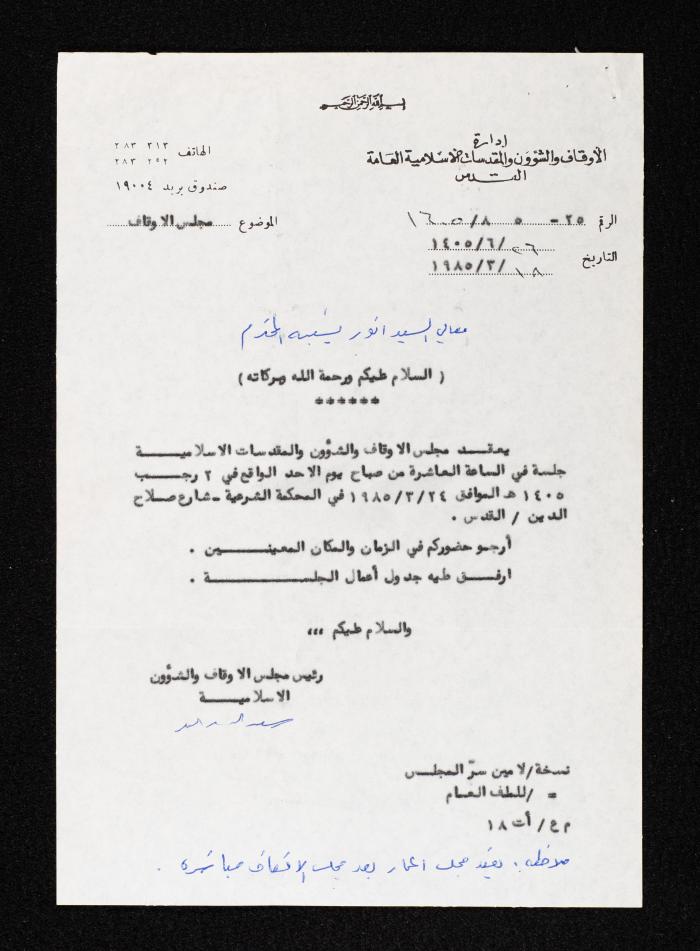 بسم الله الرحمن الرحيم
إدارة
الأوقاف والشؤون والمقدسات الإسلامية العامة
القدس
الهاتف ٢٨٣ ٣١٣
٢٨٣ ٢٥٢
صندوق بريد ١٩٠٠٤
الرقم ٢٥ - ٥ /٨
التاريخ ٢٦/٦/١٤٠٥
١٨/٣/١٩٨٥
الموضوع مجلس الاوقاف
معالي السيد انور نسيبه المحترم
( السلام عليكم ورحمة الله وبركاته )
******
يعقد مجلس الاوقاف والشؤون والمقدسات الاسلامية
جلسة في الساعة العاشرة من صباح يوم الاحد الواقع في ٢ رجب
١٤٠٥ هـ الموافق ١٩٨٥/٣/٢٤ في المحكمة الشرعية - شارع صلاح
الدين / القدس .
أرجو حضوركم في الزمان والمكان المعينين .
ارفق طيه جدول أعمال الجلسة .
والسلام عليكم ،،،
رئيس مجلس الاوقاف والشؤون
الاسلامية
نسخة/لامين سرّ المجلس
= /للطف العام
م ع/ أت ١٨
ملاحظه : يعقد مجلس اعمار بعد مجلس الاوقاف مباشره .